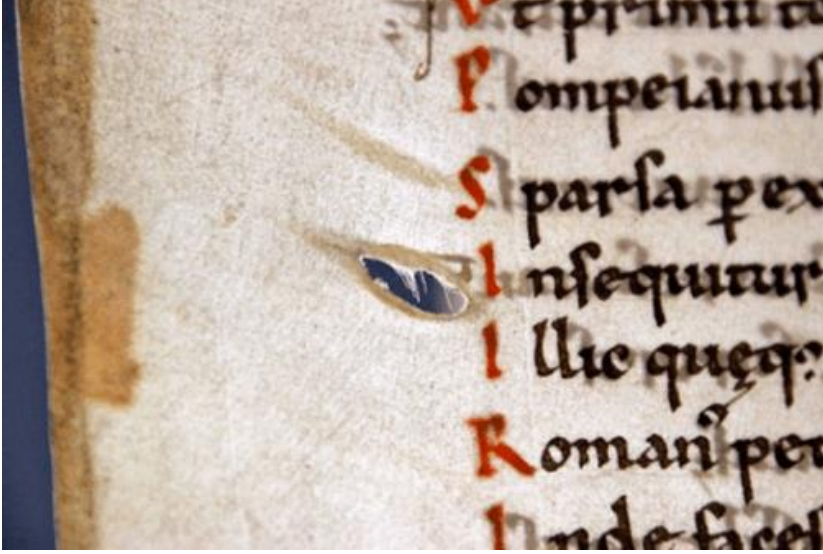 Ut primu
Pompeianus
Sparsa p ex
Insequitur
Illic quęq:
Roman' pet
Inde faces